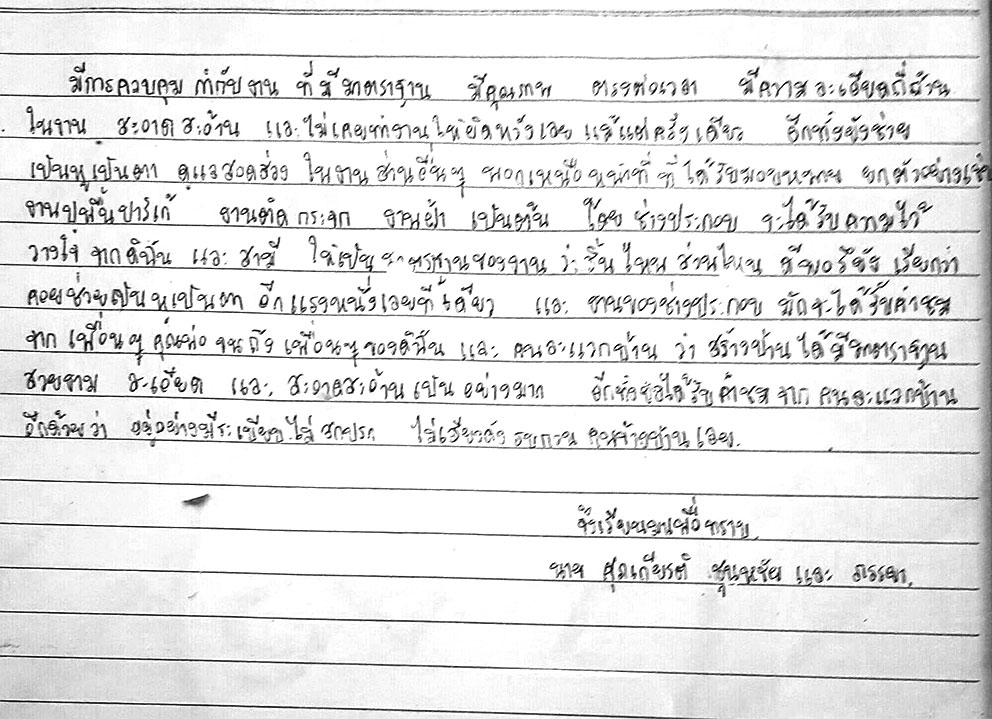 มีการควบคุม กำกับงาน ที่มีมาตราฐาน มีคุณภาพ ตรงต่อเวลา มีความละเอียดถี่ถ้วน
ในงาน สะอาดสะอ้าน และไม่เคยทำงานให้ผิดหวังเลย แม้แต่ครั้งเดียว อีกทั้งยังช่วย
เป็นหูเป็นตา ดูแลสอดส่อง ในงานส่วนอื่นๆ นอกเหนือหน้าที่ ที่ได้รับมอบหมาย ยกตัวอย่างเช่น
งานปูพื้นปาร์เก้ งานติดกระจก งานฝ้า เป็นต้น โดย ช่างประกอบ จะได้รับความไว้
วางใจ จากดิฉัน และ สามี ให้เป็น ของงาน ว่าชิ้นไหน ส่วนไหน ดีพอรึยัง เรียกว่า
คอยช่วยเป็นหูเป็นตา อีกแรงหนึ่งเลยทีเดียว และ งานของช่างประกอบ มักจะได้รับคำชม
จากเพื่อนๆ คุณพ่อ จนถึง เพื่อนๆของดิฉัน และ คนละแวกบ้าน ว่า สร้างบ้านได้มีมาตราฐาน
สวยงาม ละเอียด และ สะอาดสะอ้านเป็นอย่างมาก อีกทั้งยังได้รับคำชมจาก คนละแวกบ้าน
อีกด้วยว่า อยู่อย่างมีระเบียบ ไม่สกปรก ไม่เสียงดัง รบกวน คนข้างบ้านเลย
จึงเรียนมาเพื่อทราบ
นาย ศุภเกียรติ และ ภรรยา